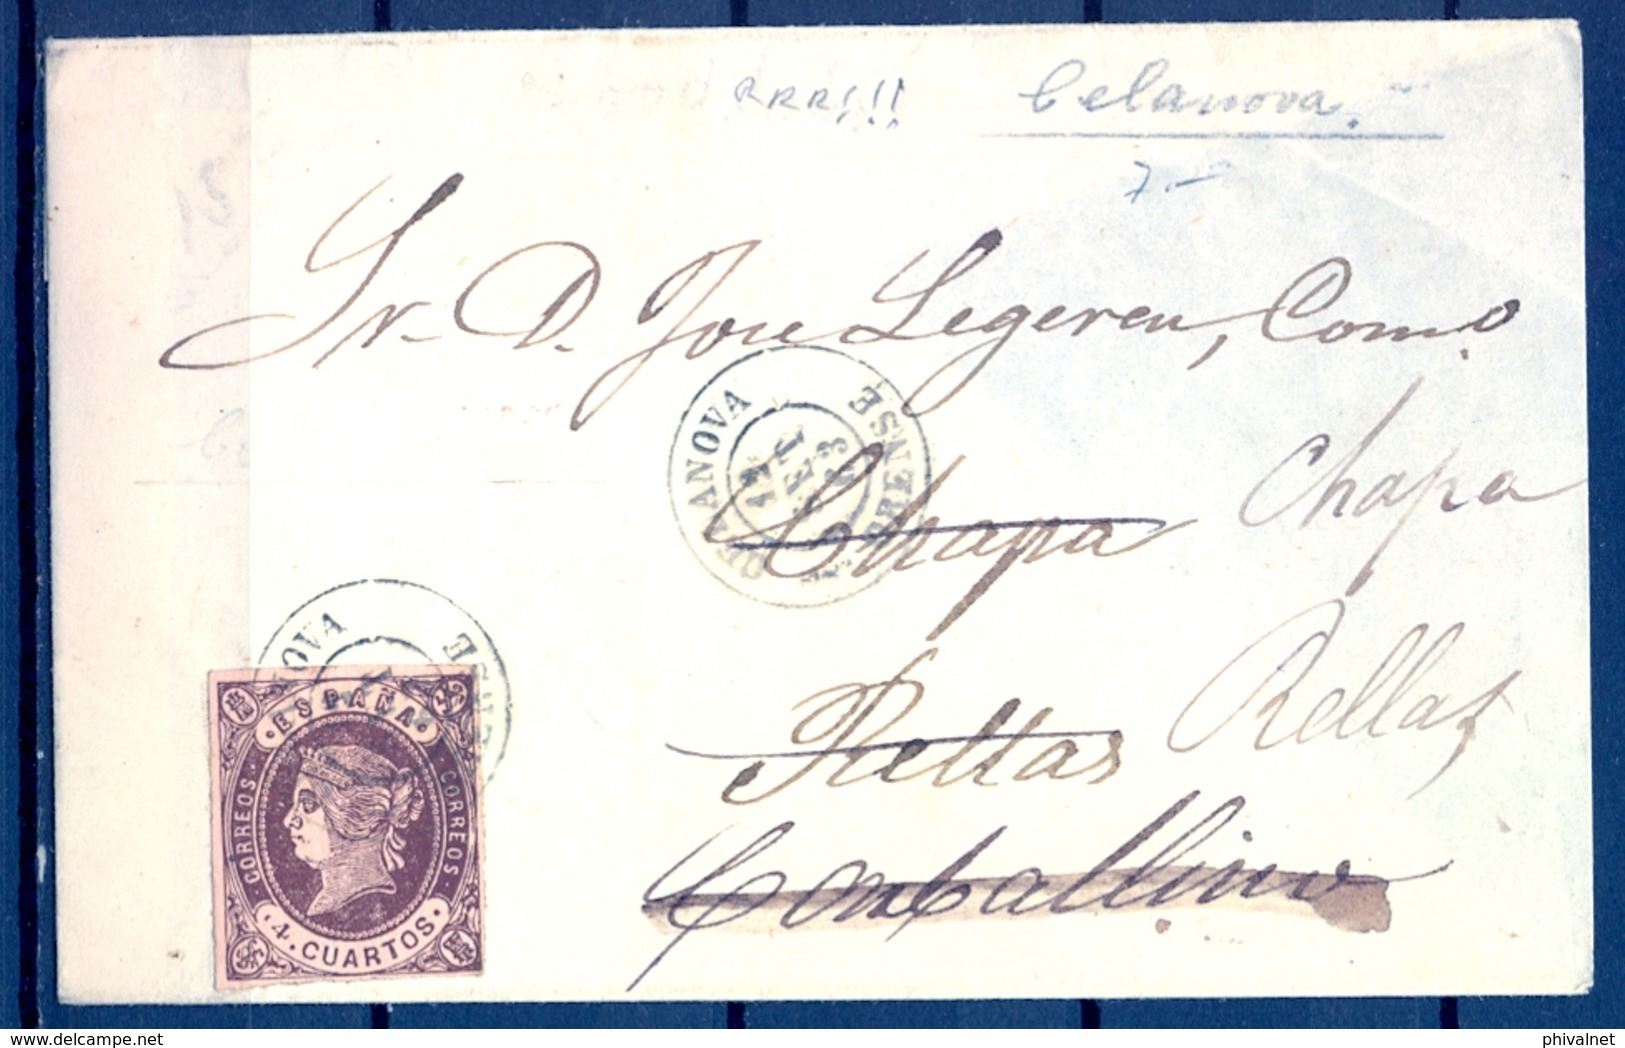 RRR!!!
Celanova.
7.-
Sr. D. Jose Legeren, Como
Chapa Chapa
Rellas Rellas
Carballino
CELANOVA
12 SET 63
ORENSE
OVA
NSE
ESPAÑA
CORREOS
CORREOS
4. CUARTOS
phivalnet